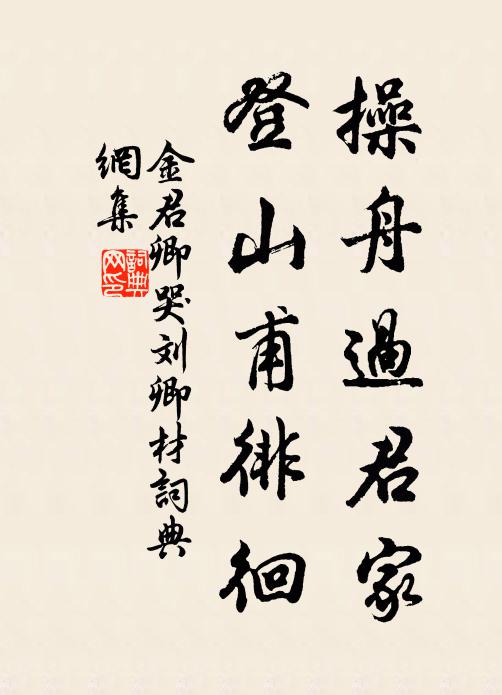 操舟過君家
登山甫徘徊
金君卿哭刘卿材詞典
網集
詞典
网印